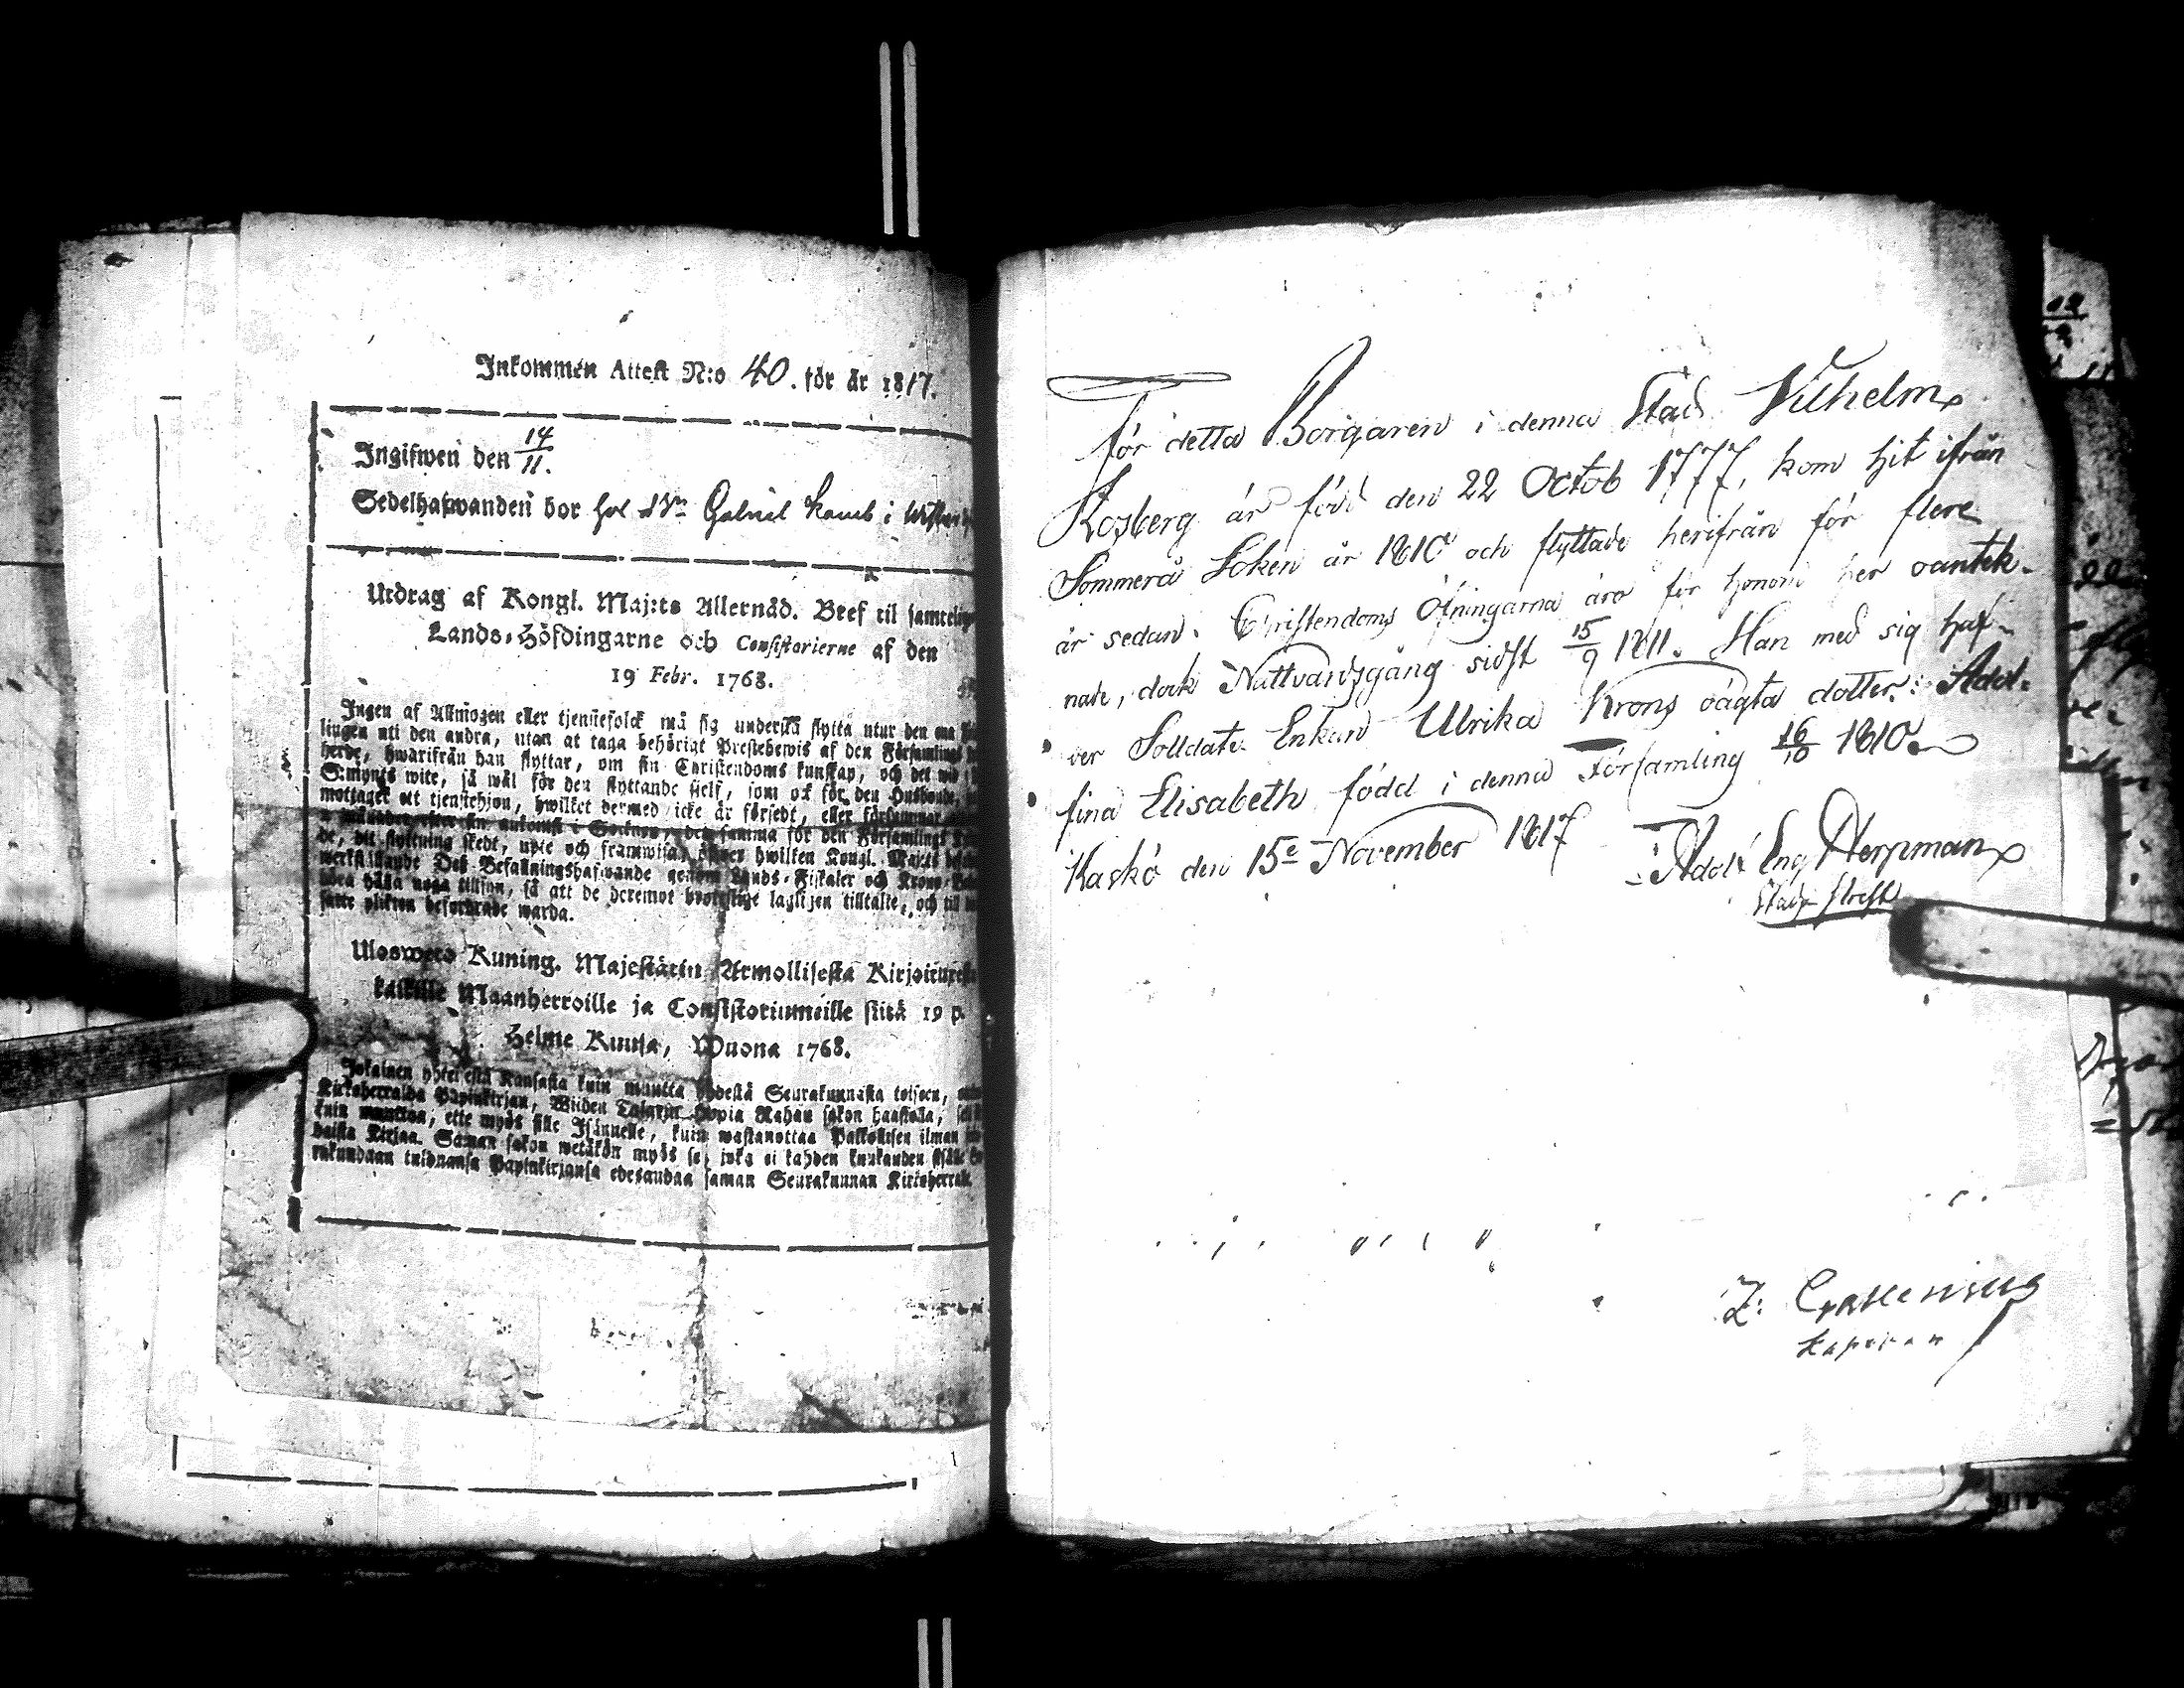 Inkommen Attest N:o 40. för år 1817.
Ingifwen den 14/11.
Sedelhafwanden bor hos Gabriel i
Utdrag af Kongl. Maj:ts Allernåd. Bref til samtelige
Lands-Höfdingarne och Consistorierne af den
19 Febr. 1768.
Ingen af Allmogen eller tjenstefolck må sig understå flytta utur den ena
lingen uti den andra, utan at taga behörigt Prestebewis af den Församlings
herde, hwarifrån han flyttar, om sin Christendoms kunskap, och det wid
S:mynts wite, så wäl för den flyttande sielf, som ock för den Husbonde,
mottaget ett tjenstehjon, hwilket dermed icke är försedt, eller försummar
månader efter sin ankomst i Socknen, det samma för den Församlings
de, dit flyttning skedt, upte och framwisa; öfwer hwilken Kongl. Maj:ts
werkställande Dess Befallningshafwande genom Lands-Fiskaler och Krono-
böra hålla noga tillsyn, så att de deremot brottslige lagligen tilltalte, och til
satte plikten befordrade warda.
Ulosweto Kuning. Majestätin Armollisesta Kirjoituxesta
kaikille Maanherroille ja Consistoriumeille siitä 19 p.
Helme Kuusa, Wuona 1768.
Jokainen yhteisestä Kansasta kuin muutta yhdestä Seurakunnasta toiseen,
Kirkoherralda Papinkirjan, Wiiden Talarin Hopia Rahan sakon haastolla,
kuin muuttaa, ette myös sille Isännelle, kuin wastanottaa Palkollisen ilman
baista Kirjaa. Saman sakon wetäkön myös se, joka ei kahden kuukauden sisälle
rakundaan tuldnansa Papinkirjansa edesandaa saman Seurakunnan Kirkoherralle
För detta Borgaren i denna Stad Vilhelm
Kosberg är född den 22 Octob 1777, kom hit ifrån
Sommerå Soken år 1810 och flyttade herifrån för flere
år sedan. Christendoms Öfningarna äro för honom her oantek-
nade, dock Nattvardsgång sidst 15/9 1811. Han med sig haf-
ver Solldats Enkan Ulrika Krons oägta dotter: Adol-
fina Elisabeth född i denna Församling 16/10 1810.
Kaskö den 15e November 1817
Adolf Eng
Z:
Kapellan